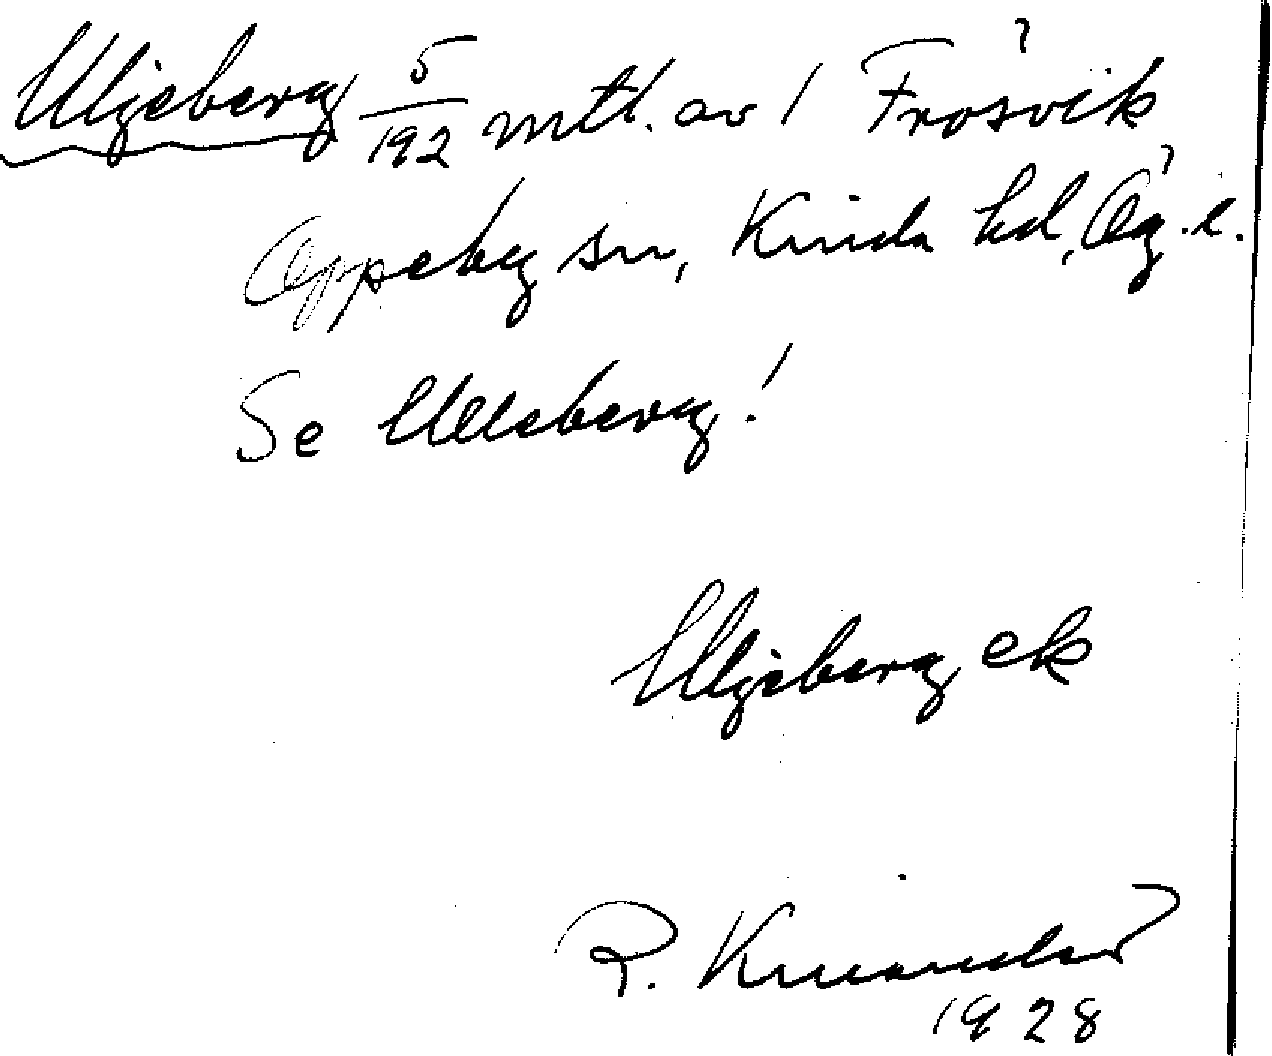 Uljeberg 5/192 mtl. av 1 Frösvik
Oppeby sn, Kinda hd, Ög. l.
Se Ulleberg!
Uljeberg ek
R.
1928